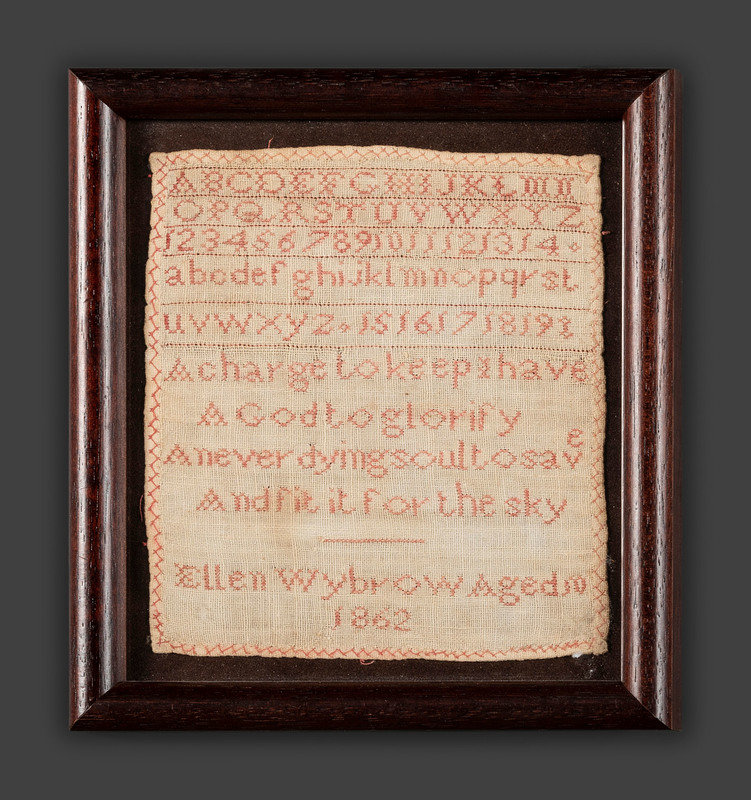 ABCDEFGHIJKLMN
OPQRSTUVWXYZ
1234567891011121314
abcdefghijklmnopqrst
uvwxyz 1516171819
A charge to keep I have
A God to glorify
A never dying soul to save
And fit it for the sky
Ellen Wybrow Aged
1862